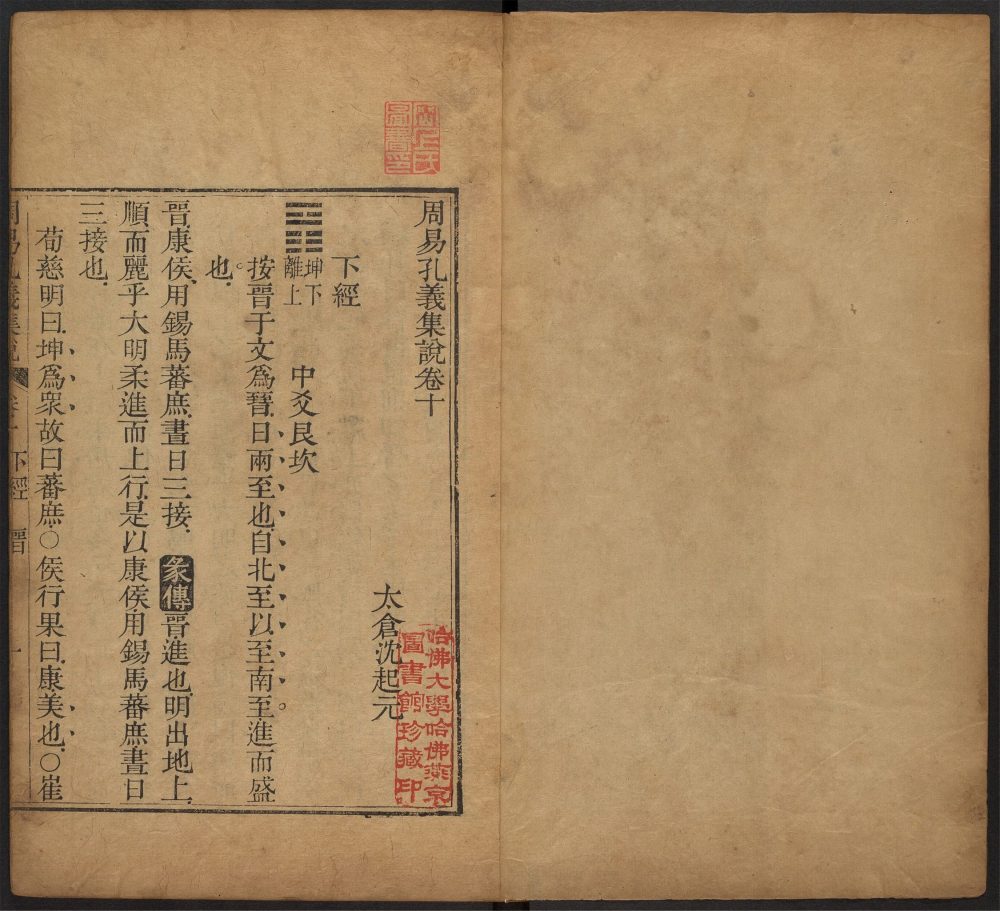 周易孔義集說卷十
太倉沈起元
下經
䷢坤下
離上
中爻艮坎
按晉于文爲𣌭日兩至也自北至以至南至進而盛
也
晉康侯用錫馬蕃庶晝日三接 彖傳晉進也明出地上
順而麗乎大明柔進而上行是以康侯用錫馬蕃庶晝日
三接也
荀慈明曰坤爲衆故曰蕃庶○侯行果曰康美也○崔
下經 晉 一
哈佛大學哈佛燕京
圖書館珍藏印